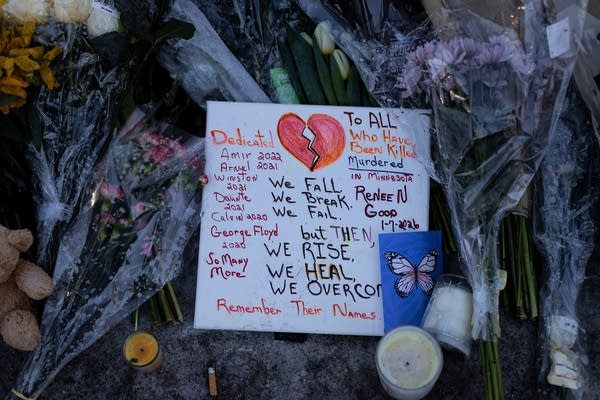 Dedicated
To ALL
Who Have
Been Killed
Murdered
in Minnesota
Amir 2022
2021
Winston
2021
Daunte
2021
Calvin 2020
George Floyd
2020
So Many
More!
We Fall.
We Break.
We Fail.
but THEN,
WE RISE,
WE HEAL,
WE OVERCO
Renee N
Good
1-7-2026
Remember Their Names